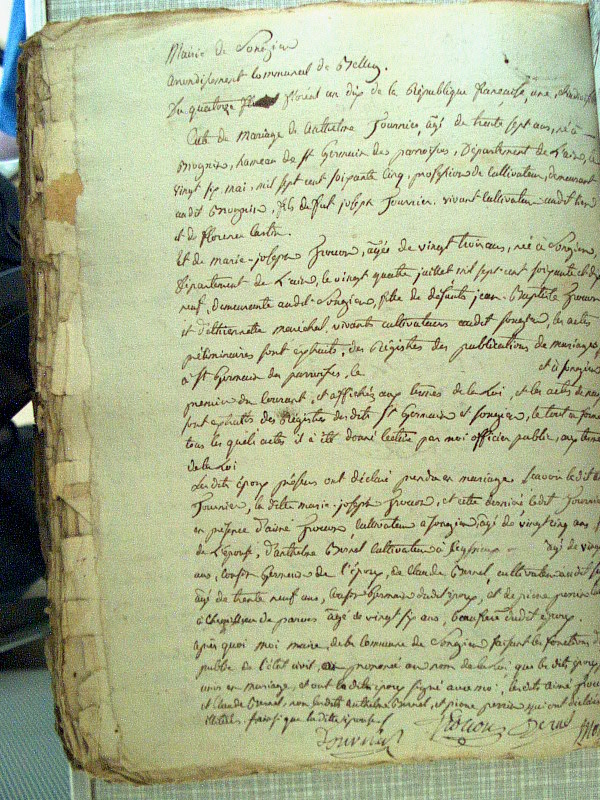 Mairie de Songieu
arrondissement Communal de Belley.
Du quatorze floreal an dix de la République française, une,
Acte de Mariage de Anthelme Fournier, âgé de trente sept ans, né à
hameau de St Germain des parroisses, Département de L'ain, le
vingt six mai, mil sept cent soixante cinq, profession de Cultivateur, demeurant
audit fils de feu joseph Fournier, vivant cultivateur audit lieu
et de florence
Et de marie-joseph agée de vingt trois ans, née à Songieu,
Département de L'ain, le vingt quatre juillet mil sept cent soixante et dix
neuf, demeurante audit Songieu, fille de défunts jean-Baptiste
et d'éthiennette maréchal vivants cultivateurs audit songieu, les actes
préliminaires sont extraits, des Régistres des publications de mariages
à St Germain des parroisses, le et à songieu
premier du Courant, et affichés aux termes de la Loi, et les actes de
sont extraits des Régistres desdits St Germain et songieu, le tout en forme
tous les quels actes il a été donné lecture par moi officier public, aux termes
de la Loi
Lesdits époux présens ont déclaré prendre en mariage Savoir ledit
Fournier, la dite marie-joseph et cette dernière ledit Fournier
en présence d'aimé cultivateur à songieu, agé de vingt cinq ans
de L'épouse, d'anthelme Burnel Cultivateur à agé de vingt
ans, cousin Germain de l'époux, de Claude Burnel, cultivateur audit
agé de trente neuf ans, Cousin Germain dudit époux, et de pierre perrin
à de parves agé de vingt six ans, beau frère dudit époux.
après quoi moi maire, de la commune de Songieu faisant les fonctions
public de l'état civil, ai prononcé au nom de la Loi que les dits époux
unis en mariage, et ont les dits époux signé avec moi, lesdits aimé
et Claude Burnel, non lesdits anthelme Burnel, et pierre perrin qui ont déclaré
que ladite épouse
Fournier